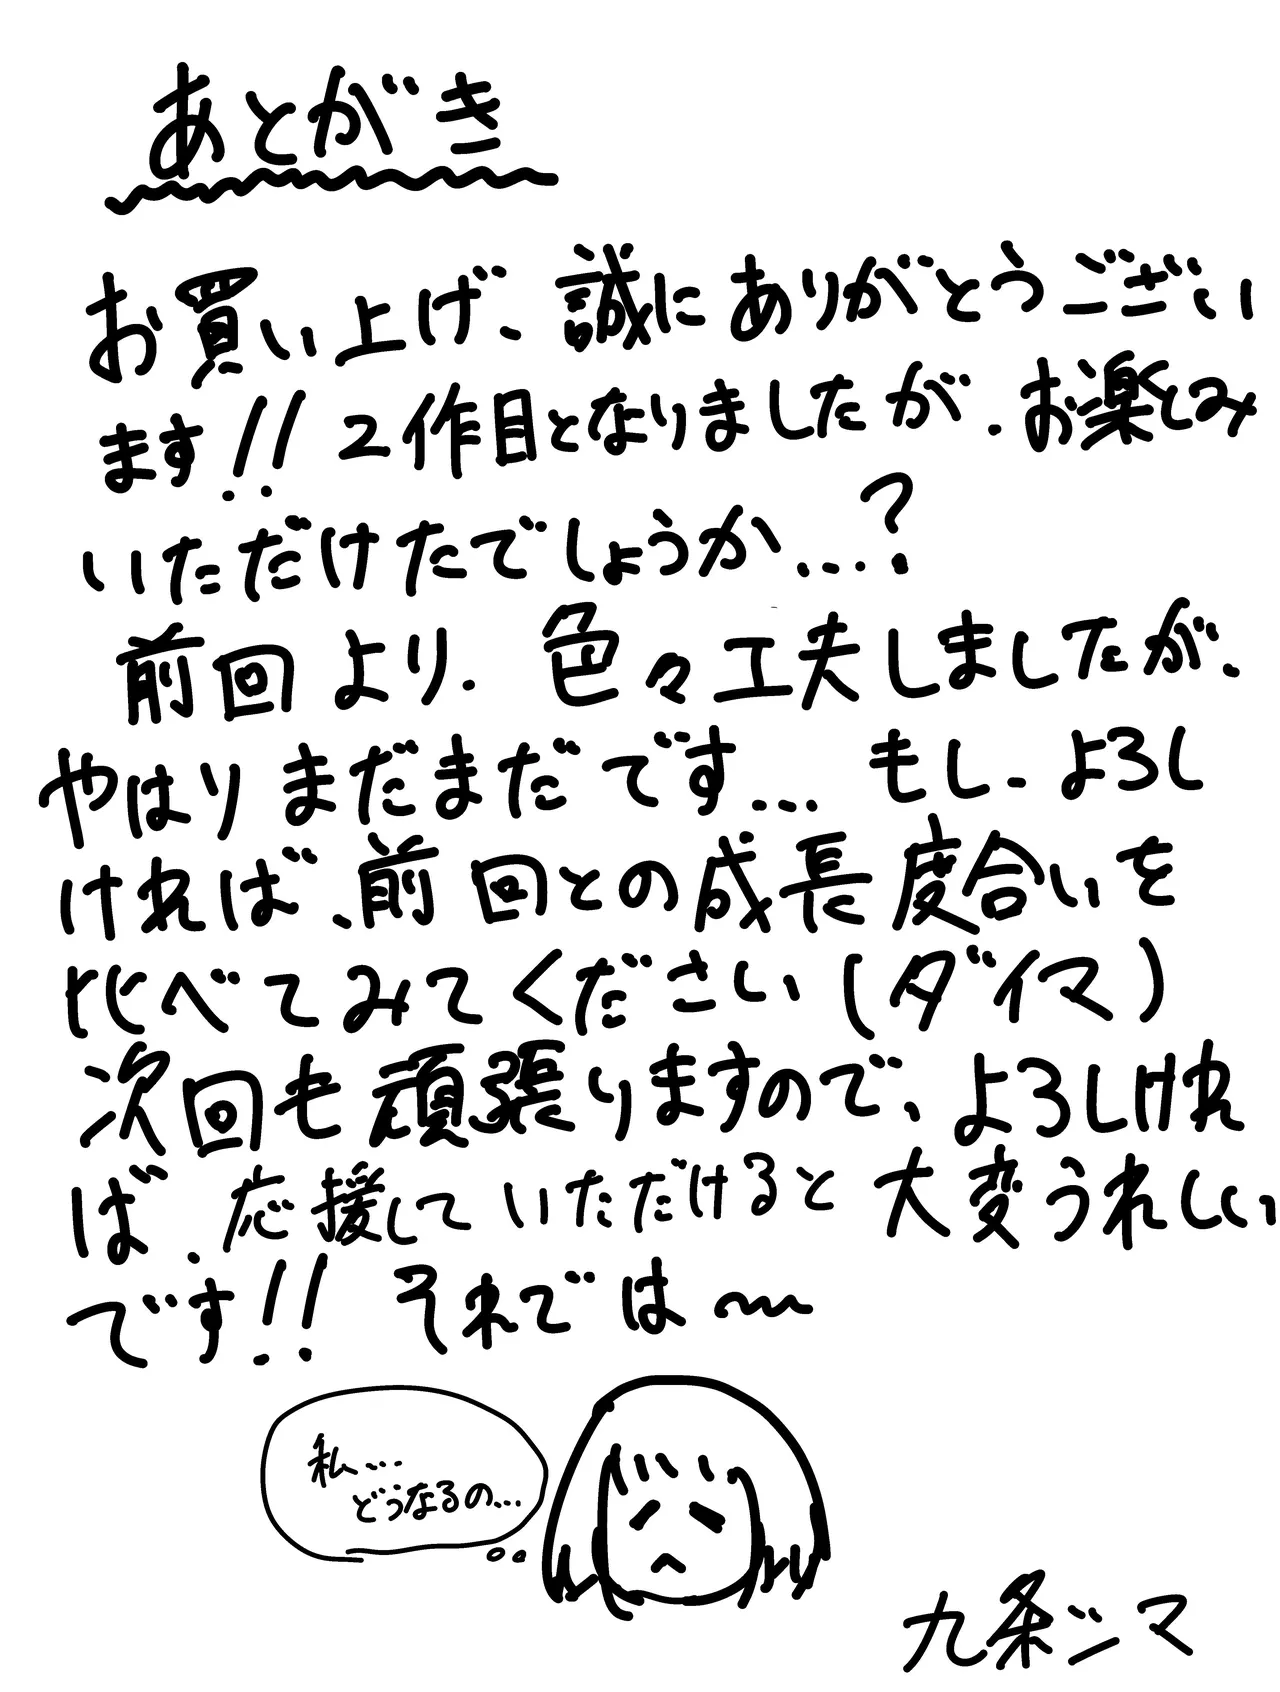 あとがき
お買い上げ、誠にありがとうござい
ます!! 2作目となりましたが、お楽しみ
いただけたでしょうか...?
前回より、色々工夫しましたが、
やはりまだまだです... もし、よろし
ければ、前回との成長度合いを
比べてみてください(ダイマ)
次回も頑張りますので、よろしけれ
ば、応援していただけると大変うれしい
です!! それでは〜
私...
どうなるの...
九条シマ